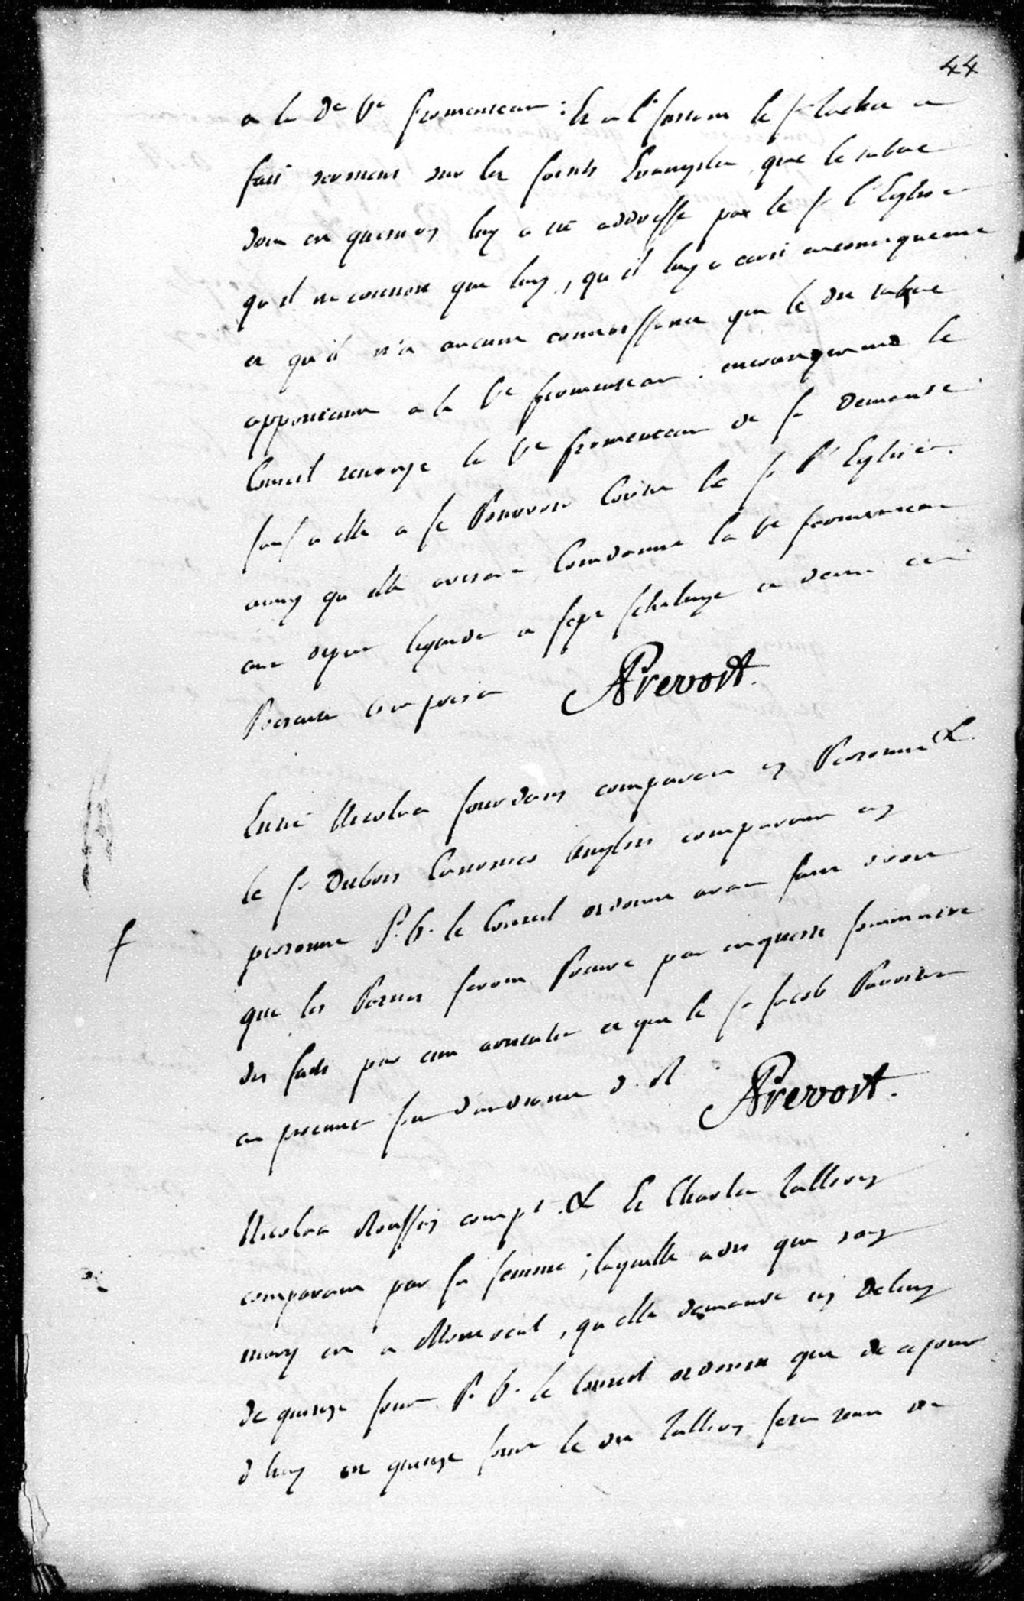 44
a la De Ve fromenteau : Et a l'Instant le Sr
fait serment sur les saints Evangiles que le tabac
dont en question luy a été addressé par le Sr l'Eglise
qu'il ne connoit que luy, qu'il luy a aussi
et qu'il n'a aucune connoissance que le dit tabac
appartienne a la Ve fromenteau. en consequence le
Conseil renvoye la Ve fromenteau de sa demande
sauf a elle a se Pourvoir Contre le Sr l'Eglise
ainsy qu'elle avisera Condamne la Ve fromenteau
aux depens liquidés a sept schelings et demi
Presente
APrevost.
Entre Nicolas Jourdain comparant en Personne &
le Sr Dubois Canonier Anglois comparant en
personne P. V. le Conseil ordonne avant faire droit
que les Parties feront Preuve par enqueste sommaire
des faits par eux articulés et que le Sr Jacob
au procureur D. R
APrevost.
Nicolas Roussin compt. & Et Charles Tallery
comparant par sa femme, laquelle a dit que son
mary est a Montreal, qu'elle demande un delay
de quinze jours P. V. le Conseil ordonne que de ce jour
d'huy en quinze jours le dit Tallery sera tenu de